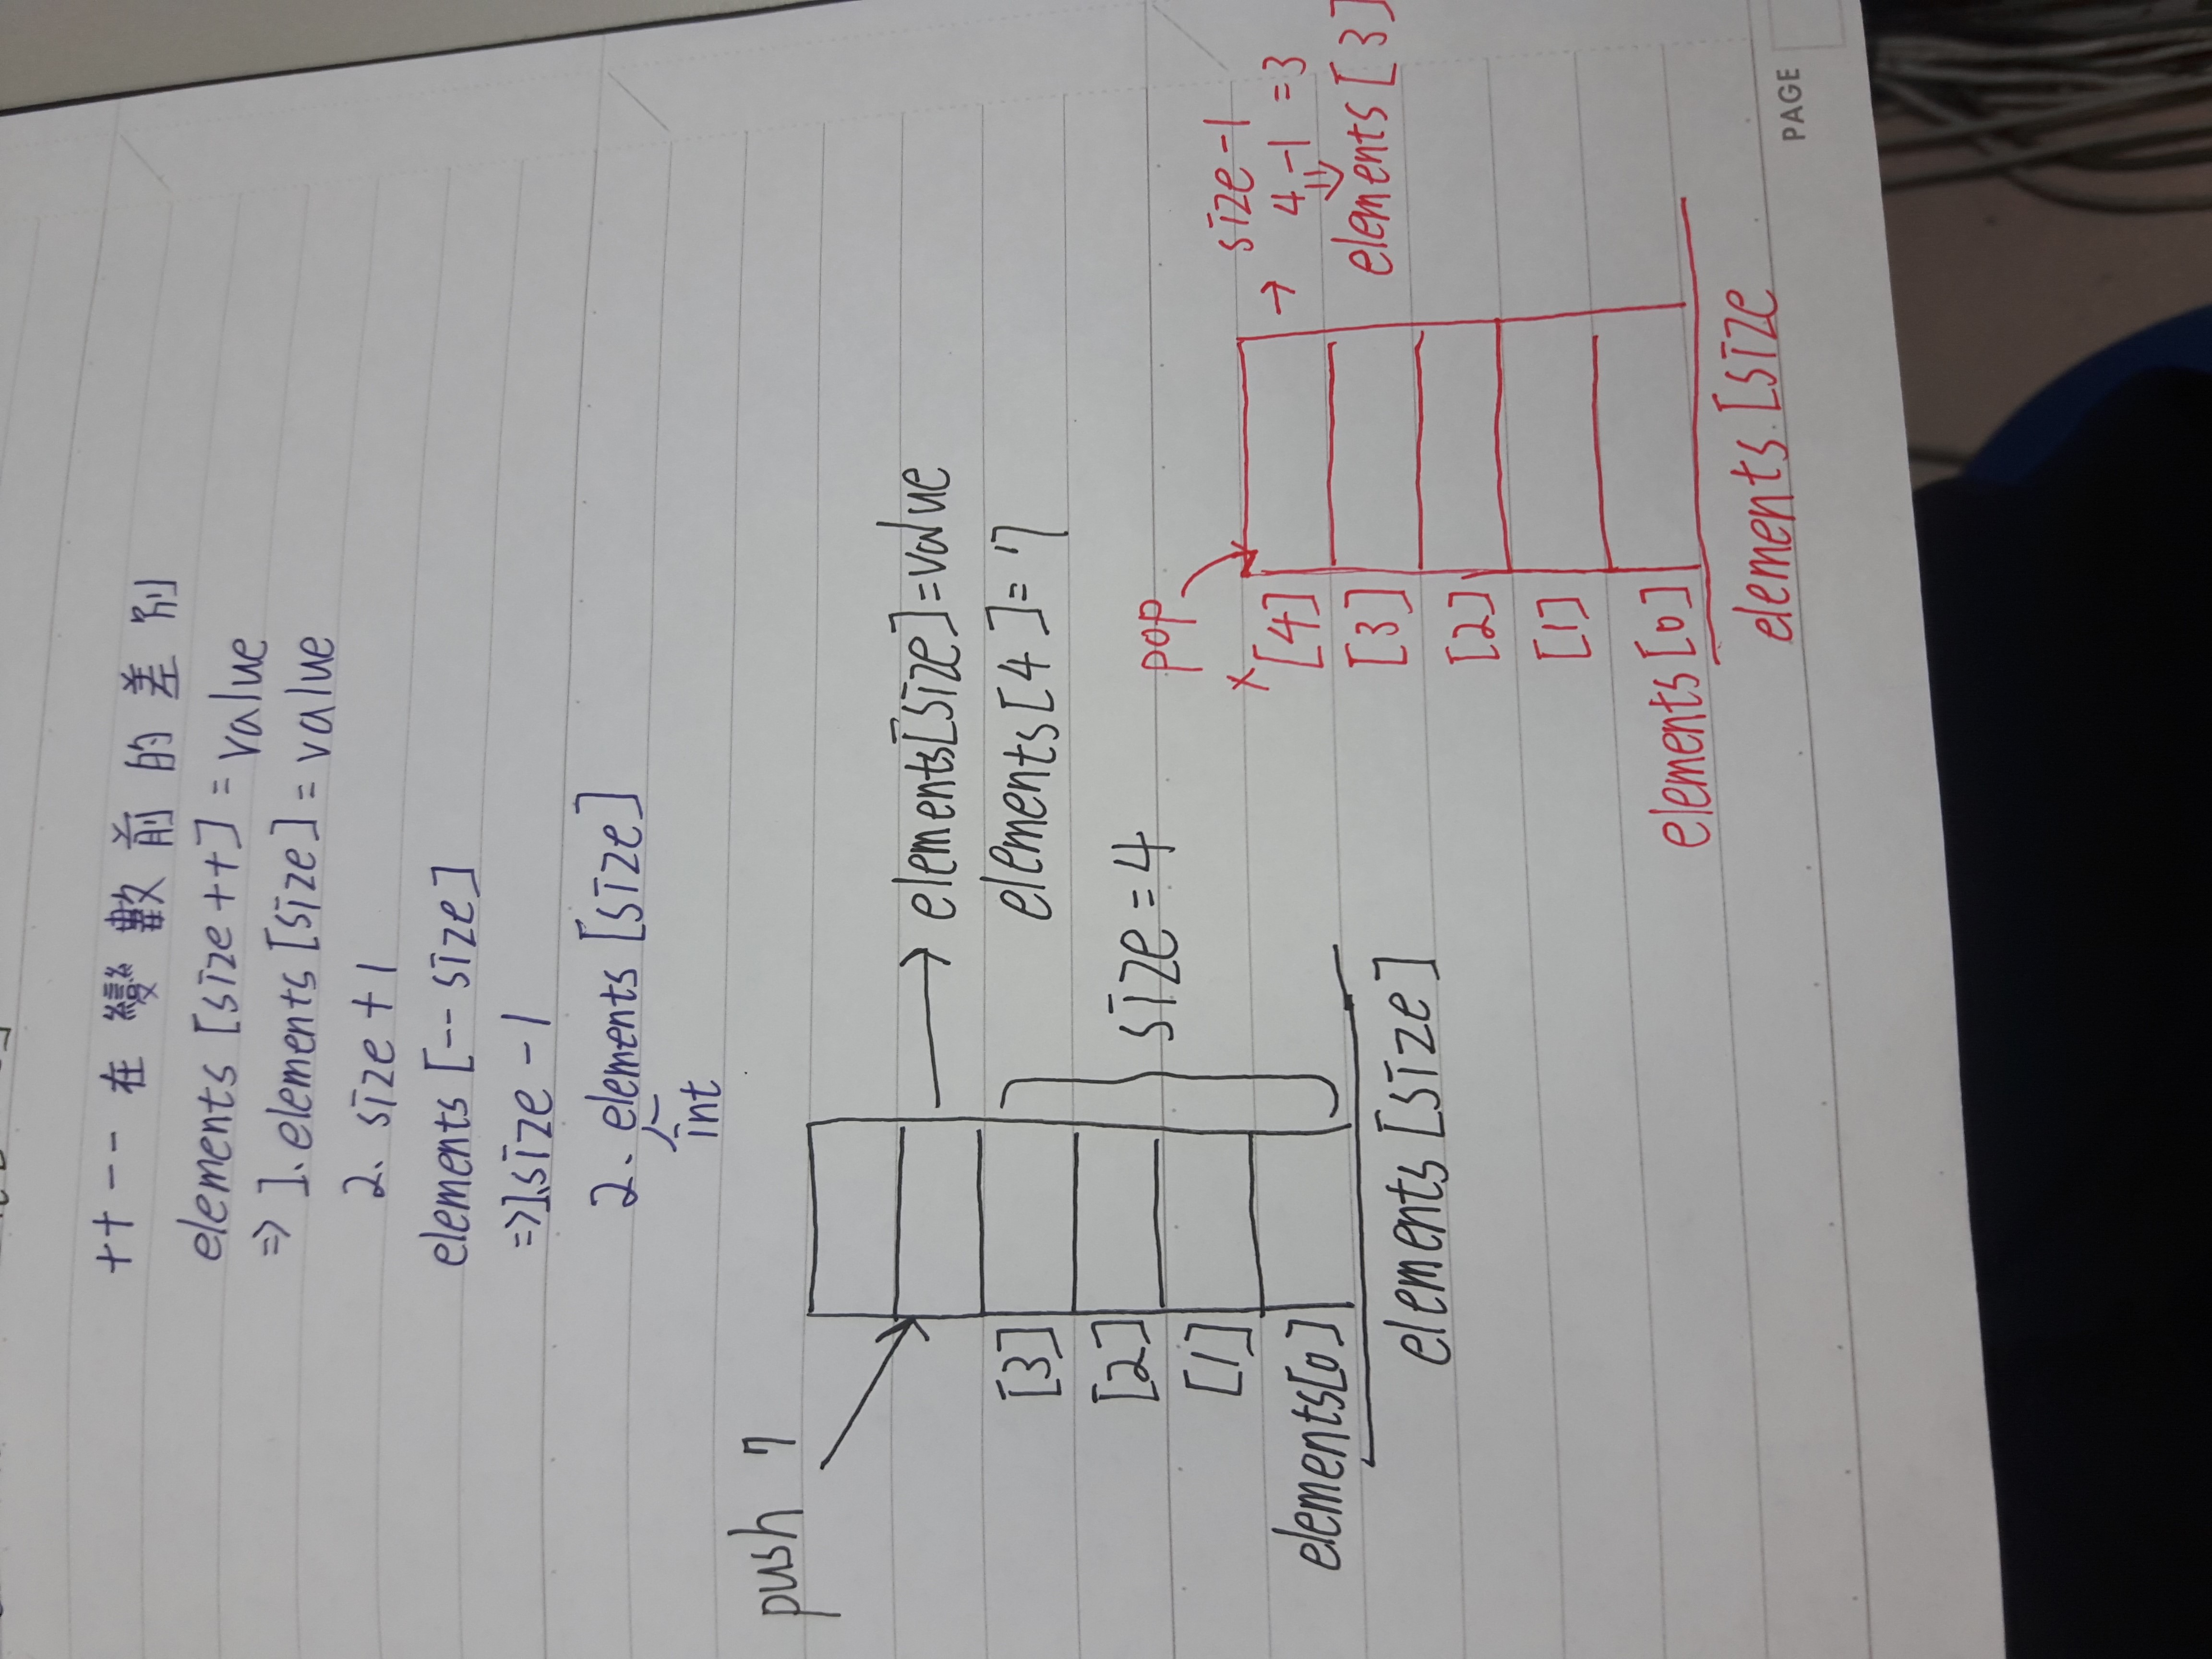 ++ -- 在變數前的差別
elements [size++] = value
=> 1. elements [size] = value
2. size + 1
elements [-- size]
=> 1. size - 1
2. elements [size]
int
push 7
→ elements[size] = value
elements[4] = 7
[3]
[2]
[1]
elements[0]
size = 4
elements [size]
pop
x [4]
[3]
[2]
[1]
elements[0]
→ size - 1
4 - 1 = 3
⇓
elements [3]
elements [size
PAGE